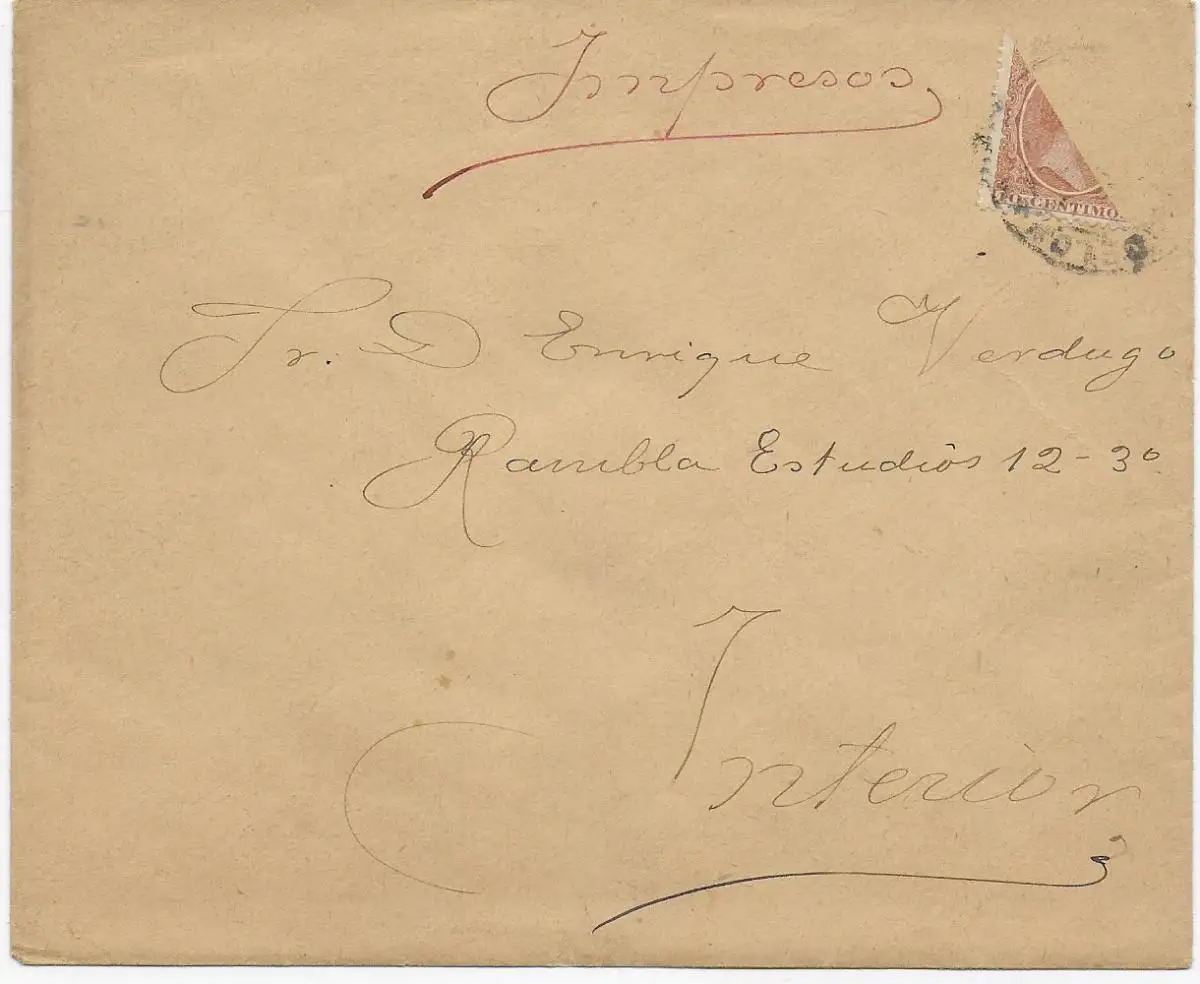 Impresos
10 CENTIMO
Sr. D Enrique Verdugo
Rambla Estudios 12-3º
Interior